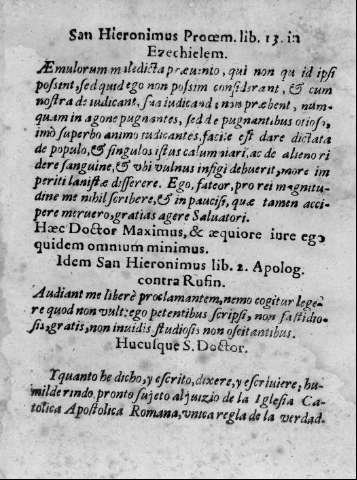 San Hieronimus Proœm. lib. 13. in
Ezechielem.
Æmulorum maledicta præuento, qui non quid ipsi
possint, sed quid ego non possim considerant, & cum
nostra deiudicant, sua iudicanda non præbent, num-
quam in agone pugnantes, sed de pugnantibus otiosi,
imò superbo animo iudicantes, facile est dare dictata
de populo, & singulos istus calumniari, ac de alieno ri
dere sanguine, & vbi vulnus infigi debuerit, more im
periti lanistæ disserere. Ego, fateor, pro rei magnitu-
dine me nihil scribere, & in paucis, quæ tamen acci-
pere meruero, gratias agere Saluatori.
Hæc Doctor Maximus, & æquiore iure ego
quidem omnium minimus.
Idem San Hieronimus lib. 2. Apolog.
contra Rufin.
Audiant me liberè proclamantem, nemo cogitur lege-
re quod non vult: ego petentibus scripsi, non fastidio-
sis, gratis, non inuidis studiosis non oscitantibus.
Hucusque S. Doctor.
Y quanto he dicho, y escrito, dixere, y escriuiere, hu-
milde rindo, pronto sujeto al juizio de la Iglesia Ca-
tolica Apostolica Romana, vnica regla de la verdad.